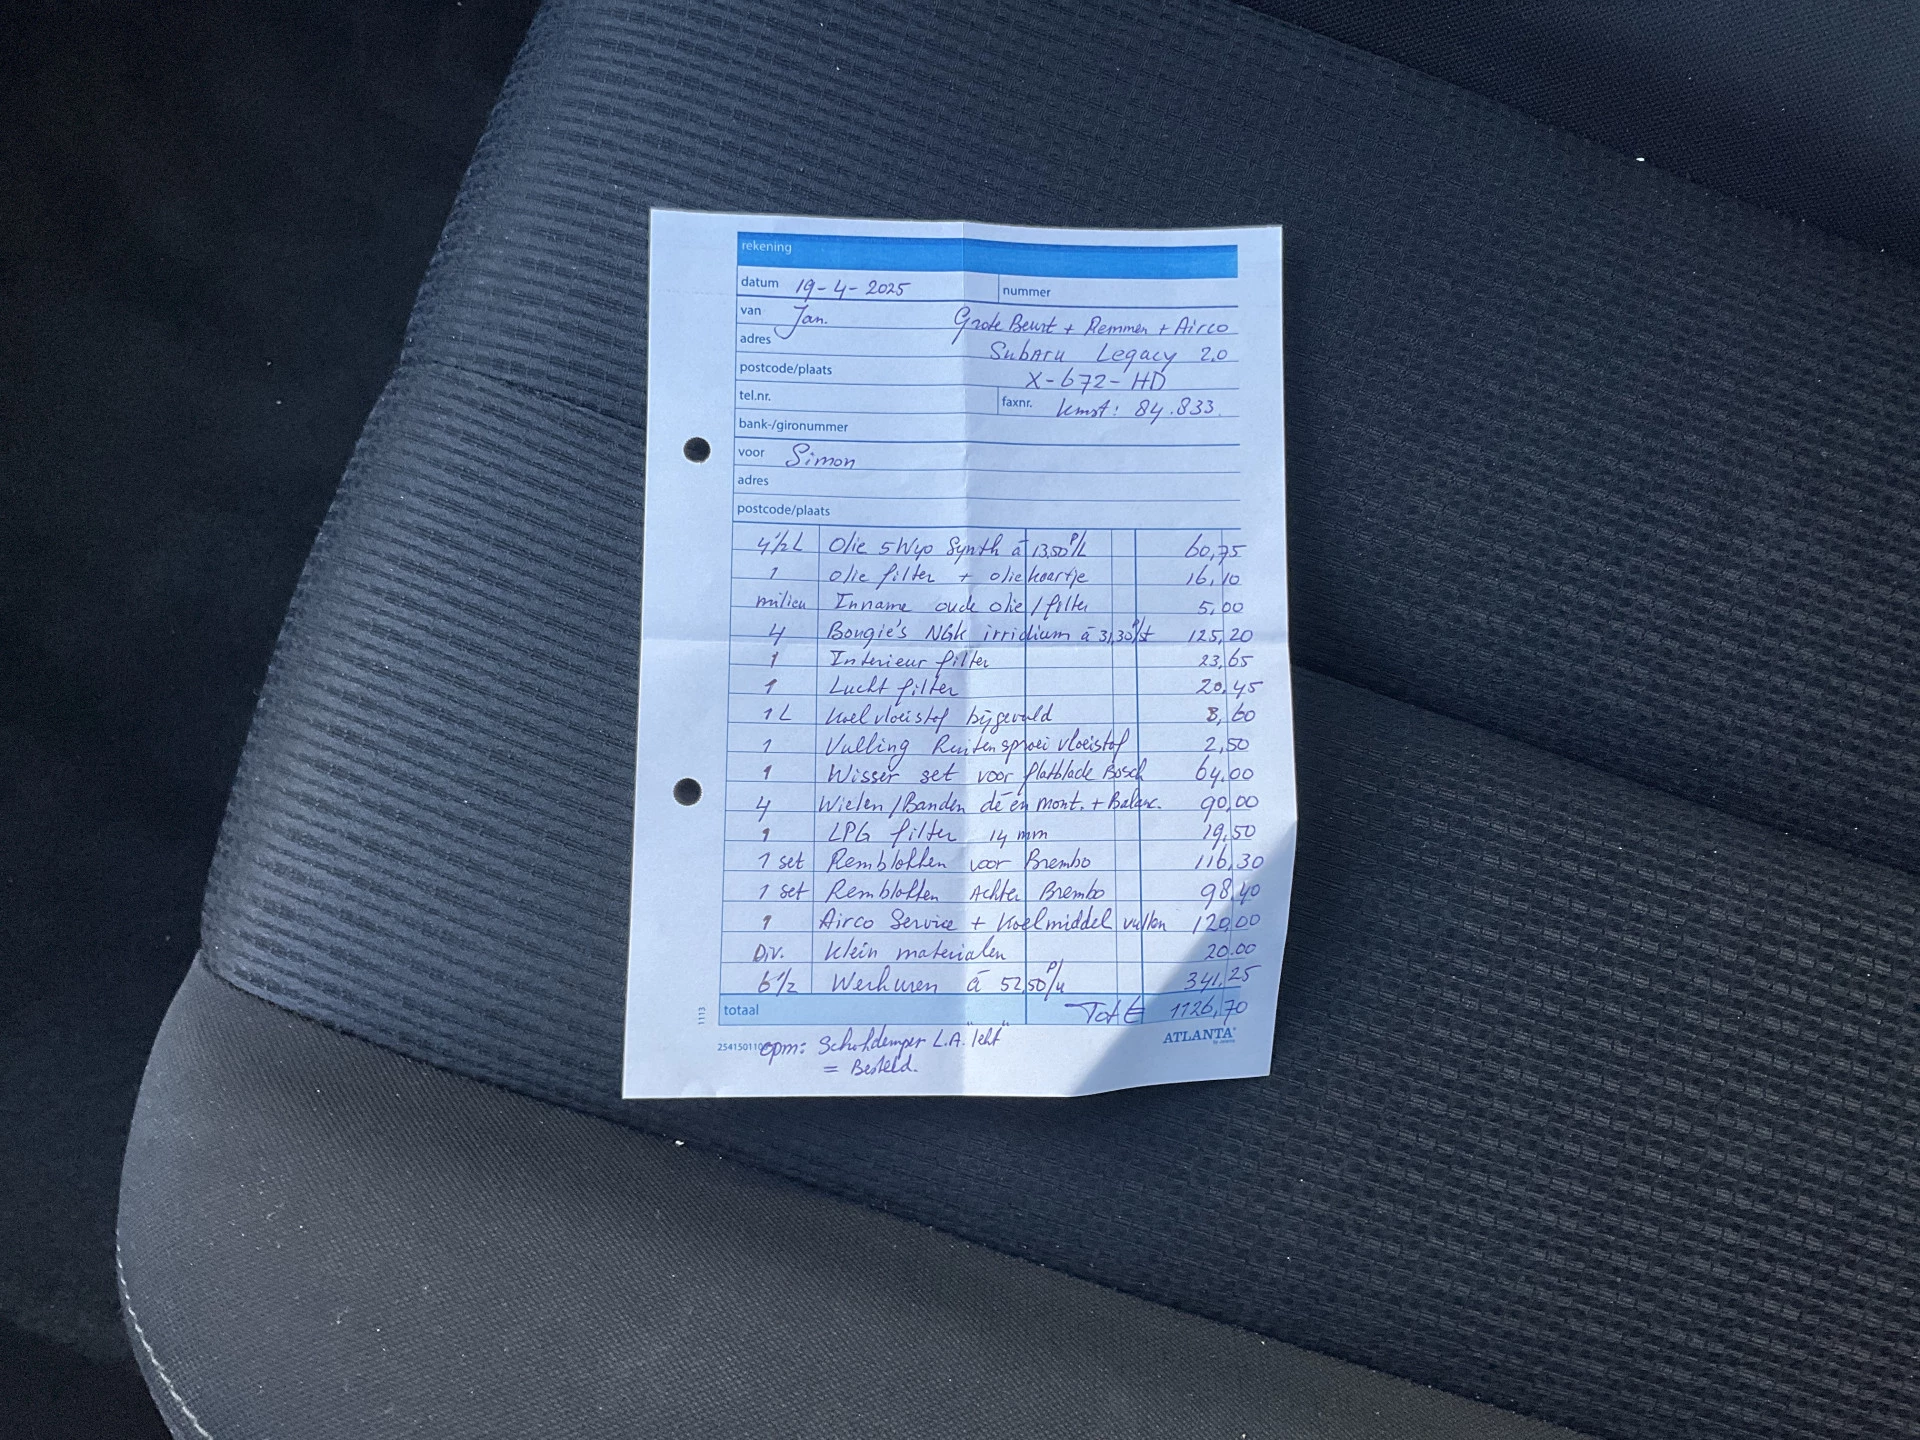 rekening
datum 19-4-2025 nummer
van Jan. Grote Beurt + Remmen + Airco
adres Subaru Legacy 2.0
postcode/plaats X-672-HD
tel.nr. faxnr. kmst: 84.833.
bank-/gironummer
voor Simon
adres
postcode/plaats
4½ L Olie 5W40 Synth à 13,50 P/L 60,75
1 olie filter + oliekaartje 16,10
milieu Inname oude olie/filter 5,00
4 Bougie's NGK irridium à 31,30 P/st 125,20
1 Interieur filter 23,65
1 Lucht filter 20,45
1 L Koelvloeistof bijgevuld 8,60
1 Vulling Ruitensproei vloeistof 2,50
1 Wisser set voor flatblade Bosch 64,00
4 Wielen/Banden de en mont. + Balanc. 90,00
1 LPG filter 14 mm 19,50
1 set Remblokken voor Brembo 116,30
1 set Remblokken Achter Brembo 98,40
1 Airco Service + Koelmiddel vullen 120,00
Div. Klein materialen 20.00
6½ Werkuren à 52,50 P/u 341,25
totaal Tot € 1126,70
1113
ATLANTA
opm: Schokdemper L.A. "lekt"
= Besteld.